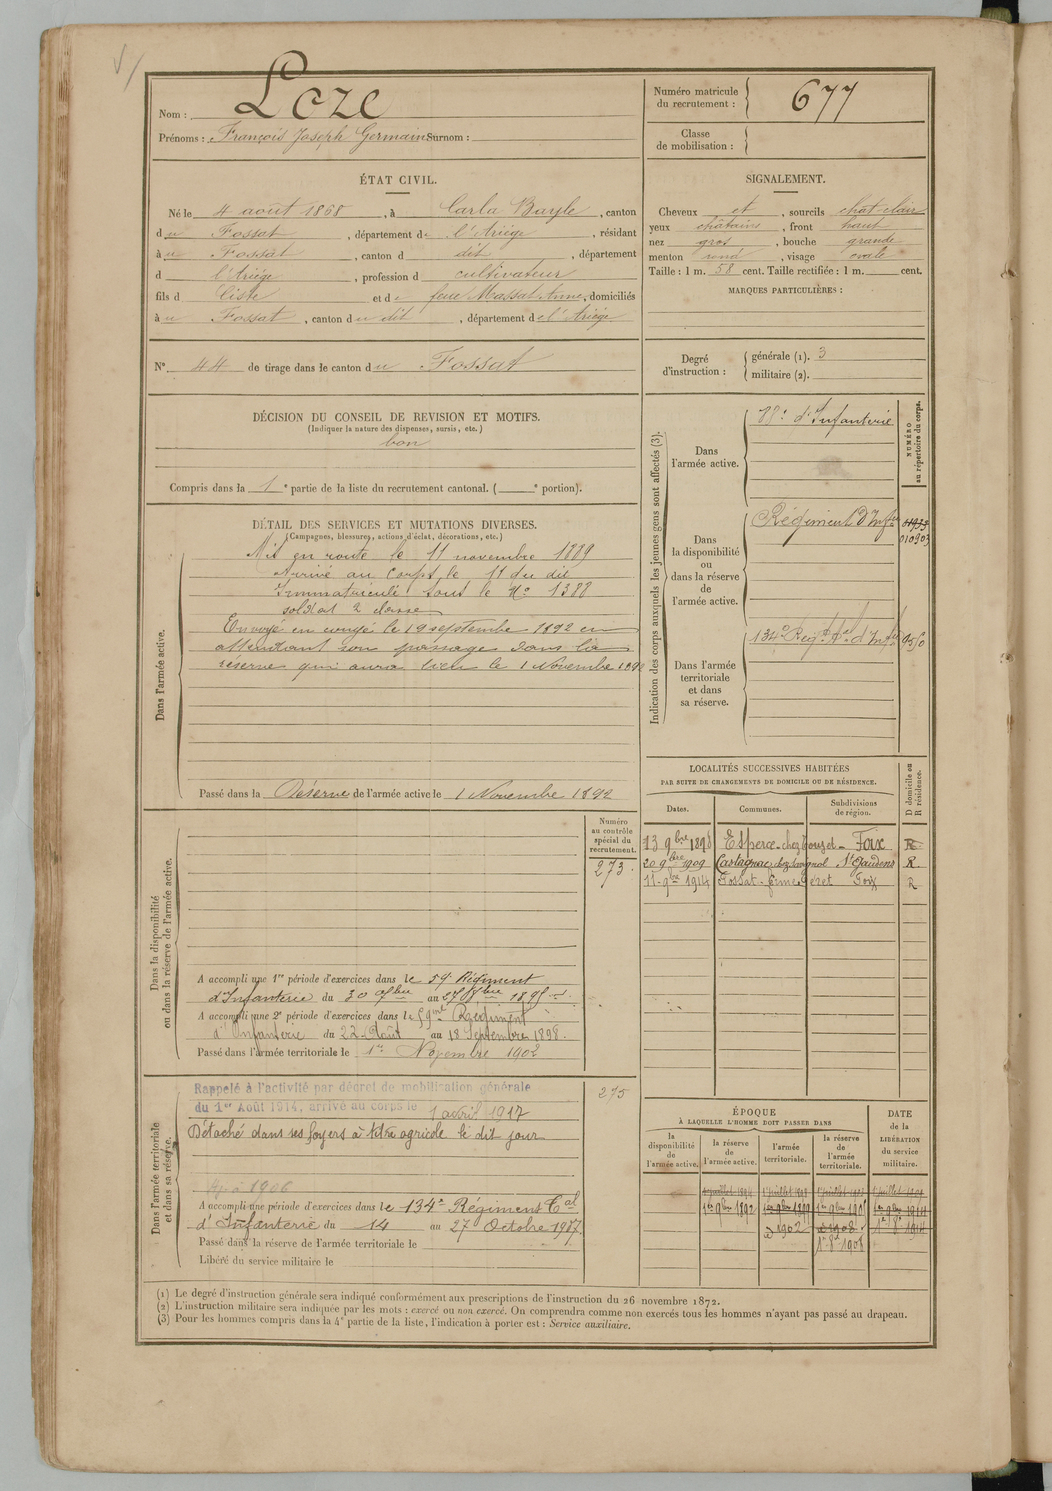 Nom : Loze
Prénoms : François Joseph Germain Surnom :
Numéro matricule du recrutement : 677
Classe de mobilisation :
ÉTAT CIVIL.
Né le 4 août 1868, à Carla Bayle, canton
du Fossat, département de l'Ariége, résidant
à u Fossat, canton d dit, département
d l'Ariége, profession d cultivateur
fils d et de feue Massat Anne, domiciliés
à u Fossat, canton du dit, département de l'Ariége
N° 44 de tirage dans le canton du Fossat
SIGNALEMENT.
Cheveux et, sourcils chat-clair
yeux châtains, front haut
nez gros, bouche grande
menton rond, visage ovale
Taille : 1 m. 58 cent. Taille rectifiée : 1 m. cent.
MARQUES PARTICULIÈRES :
Degré d'instruction :
générale (1). 3
militaire (2).
DÉCISION DU CONSEIL DE REVISION ET MOTIFS.
(Indiquer la nature des dispenses, sursis, etc.)
bon
Compris dans la 1e partie de la liste du recrutement cantonal. ( e portion).
DÉTAIL DES SERVICES ET MUTATIONS DIVERSES.
(Campagnes, blessures, actions d'éclat, décorations, etc.)
Dans l'armée active.
Mis en route le 11 novembre 1889
Arrivé au corps le 11 du dit
Immatriculé sous le N° 1388
soldat 2 classe
Envoyé en congé le 19 septembre 1892 en
attendant son passage dans la
réserve qui aura lieu le 1 Novembre 1892
Passé dans la Réserve de l'armée active le 1 Novembre 1892
Indication des corps auxquels les jeunes gens sont affectés (3).
NUMÉRO au répertoire du corps.
Dans l'armée active.
d'Infanterie
Dans la disponibilité ou dans la réserve de l'armée active.
Régiment d'Infie
010903
Dans l'armée territoriale et dans sa réserve.
134e Régt Tal d'Infie
LOCALITÉS SUCCESSIVES HABITÉES
PAR SUITE DE CHANGEMENTS DE DOMICILE OU DE RÉSIDENCE.
Dates.
Communes.
Subdivisions de région.
D domicile ou R résidence.
13 9bre 1898 Esperce - chez Foix R
20 9bre 1909 Castagnac chez St Gaudens R
11 1914 Fossat - ferme Foix R
Dans la disponibilité ou dans la réserve de l'armée active.
Numéro au contrôle spécial du recrutement.
273
A accompli une 1re période d'exercices dans le 59e Régiment
d'Infanterie du 30 au 27
A accompli une 2e période d'exercices dans le 59me Régiment
d'Infanterie du 22 Août au 18 Septembre 1898.
Passé dans l'armée territoriale le 1er Novembre 1902
Dans l'armée territoriale et dans sa réserve.
275
Rappelé à l'activité par décret de mobilisation générale
du 1er Août 1914, arrivé au corps le 1 avril 1917
Détaché dans ses foyers à titre agricole le dit jour
1906
A accompli une période d'exercices dans le 134e Régiment Tal
d'Infanterie du 14 au 27 Octobre
Passé dans la réserve de l'armée territoriale le
Libéré du service militaire le
ÉPOQUE
À LAQUELLE L'HOMME DOIT PASSER DANS
la disponibilité de l'armée active.
la réserve de l'armée active.
l'armée territoriale.
la réserve de l'armée territoriale.
DATE de la LIBÉRATION du service militaire.
1er 9bre 1892
1902
1908
1er 8 1914
(1) Le degré d'instruction générale sera indiqué conformément aux prescriptions de l'instruction du 26 novembre 1872.
(2) L'instruction militaire sera indiquée par les mots : exercé ou non exercé. On comprendra comme non exercés tous les hommes n'ayant pas passé au drapeau.
(3) Pour les hommes compris dans la 4e partie de la liste, l'indication à porter est : Service auxiliaire.